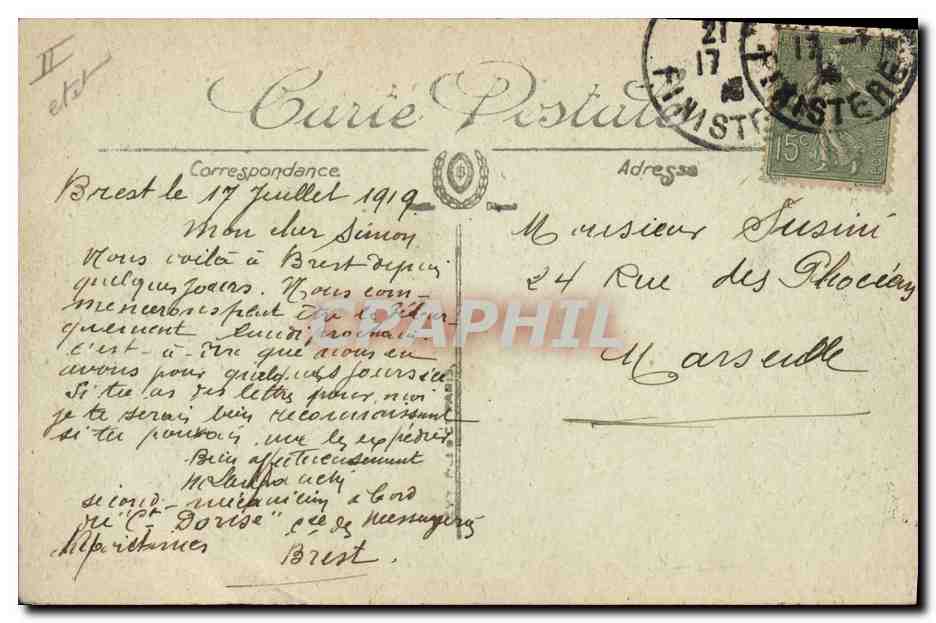 II
21
17
FINISTE
17
FINISTERE
15c
Carte Postale
Correspondance
Adresse
Brest le 17 Juillet 1919
Mon cher Simon
Nous voilà à Brest depuis
quelques jours. Nous com-
mencerons peut être le débar-
quement lundi prochain.
c'est-à-dire que nous en
avons pour quelques jours ici
Si tu as des lettres pour moi
je te serais bien reconnaissant
si tu pouvais me les expédier
Bien affectueusement
second mécanicien à bord
du "Ct Dorise" Cie des Messageries
Maritimes
Brest.
Monsieur Susini
24 Rue des Phocéens
Marseille
CPAPHIL